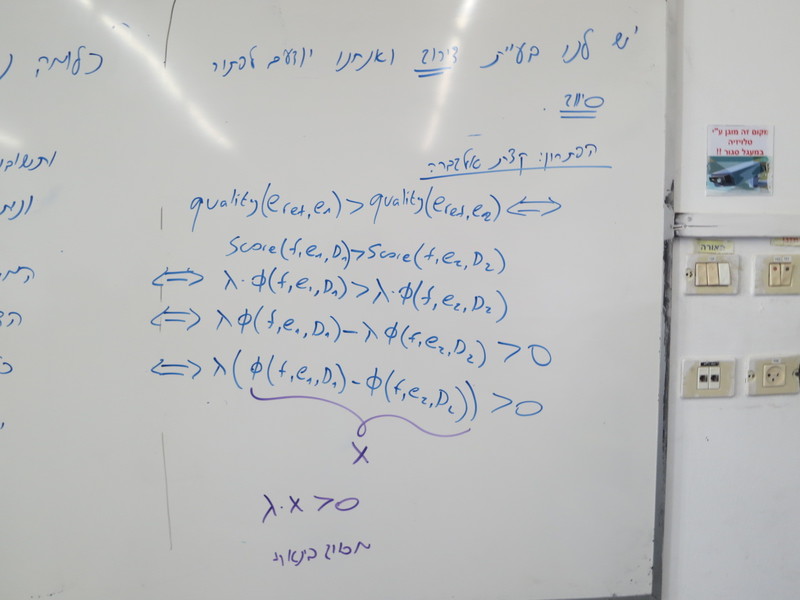 יש לנו בעיית דירוג ואנחנו יודעים לפתור
סיווג.
הפתרון: קצת אלגברה
quality(e_ref, e_1) > quality(e_ref, e_2) ⟺
Score(f, e_1, D_1) > Score(f, e_2, D_2)
⟺ λ·Φ(f, e_1, D_1) > λ·Φ(f, e_2, D_2)
⟺ λΦ(f, e_1, D_1) − λΦ(f, e_2, D_2) > 0
⟺ λ(Φ(f, e_1, D_1) − Φ(f, e_2, D_2)) > 0
x
λ·x > 0
מסווג בינארי
כלומה
מקום זה מוגן ע"י
טלויזיה
במעגל סגור !!
תאורה